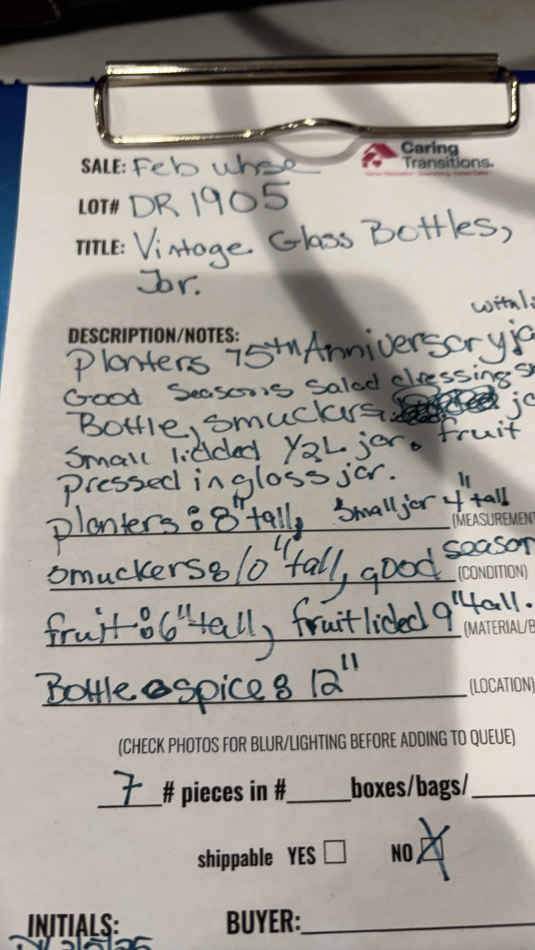 Caring
Transitions.
SALE: Feb whse
LOT# DR 1905
TITLE: Vintage Glass Bottles,
Jar.
DESCRIPTION/NOTES:
Planters 75th Anniversary
Good Seasons Salad dressing
Bottle, Smuckers
Small lidded 1/2L jar. fruit
pressed in glass jar.
planters: 8" tall, Small jar 4" tall
(MEASUREMEN
smuckers: 10" tall, good season
(CONDITION)
fruit: 6" tall, fruit lided 9" tall.
(MATERIAL/B
Bottle spice: 12"
(LOCATION)
(CHECK PHOTOS FOR BLUR/LIGHTING BEFORE ADDING TO QUEUE)
7 # pieces in #_____boxes/bags/_____
shippable YES ☐ NO ☒
INITIALS: BUYER: